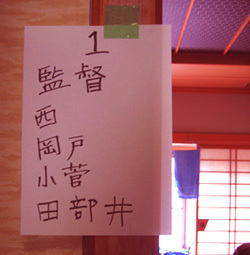 1
監督
西
岡戸
小菅
田部井